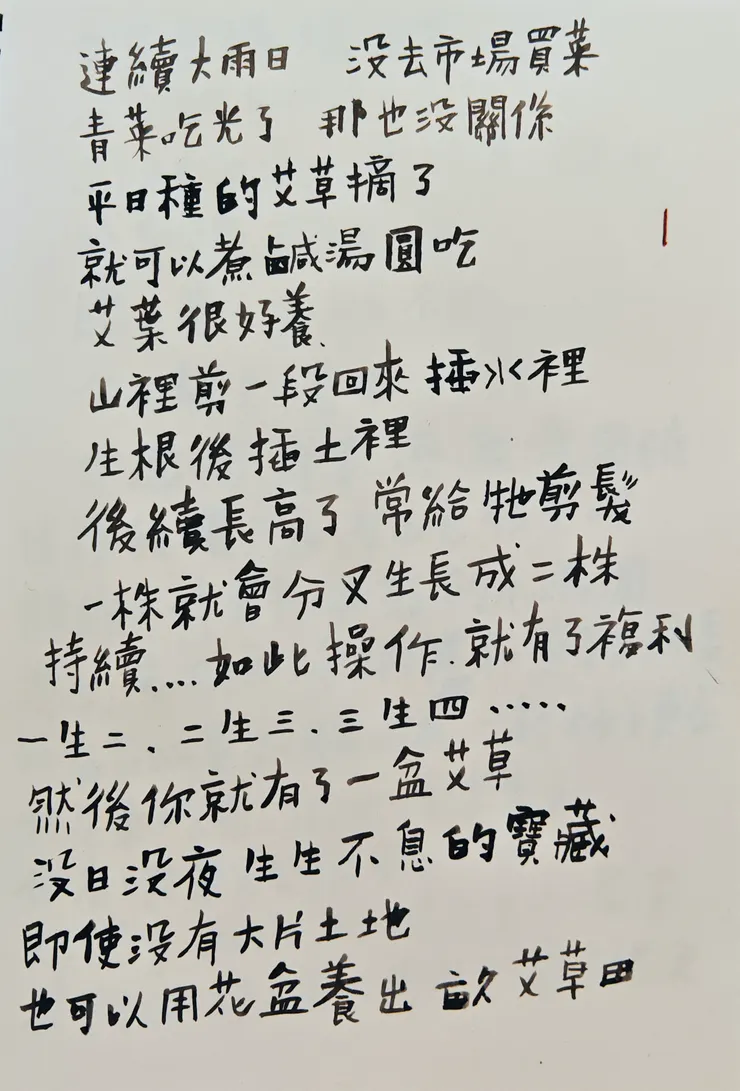 連續大雨日 没去市場買菜
青菜吃光了 那也没關係
平日種的艾草摘了
就可以煮鹹湯圓吃
艾葉很好養
山裡剪一段回來插水裡
生根後插土裡
後續長高了 常給牠剪髮
一株就會分叉生長成二株
持續....如此操作.就有了複利
一生二、二生三、三生四.....
然後你就有了一盆艾草
没日没夜生生不息的寶藏
即使没有大片土地
也可以用花盆養出 畝艾草田